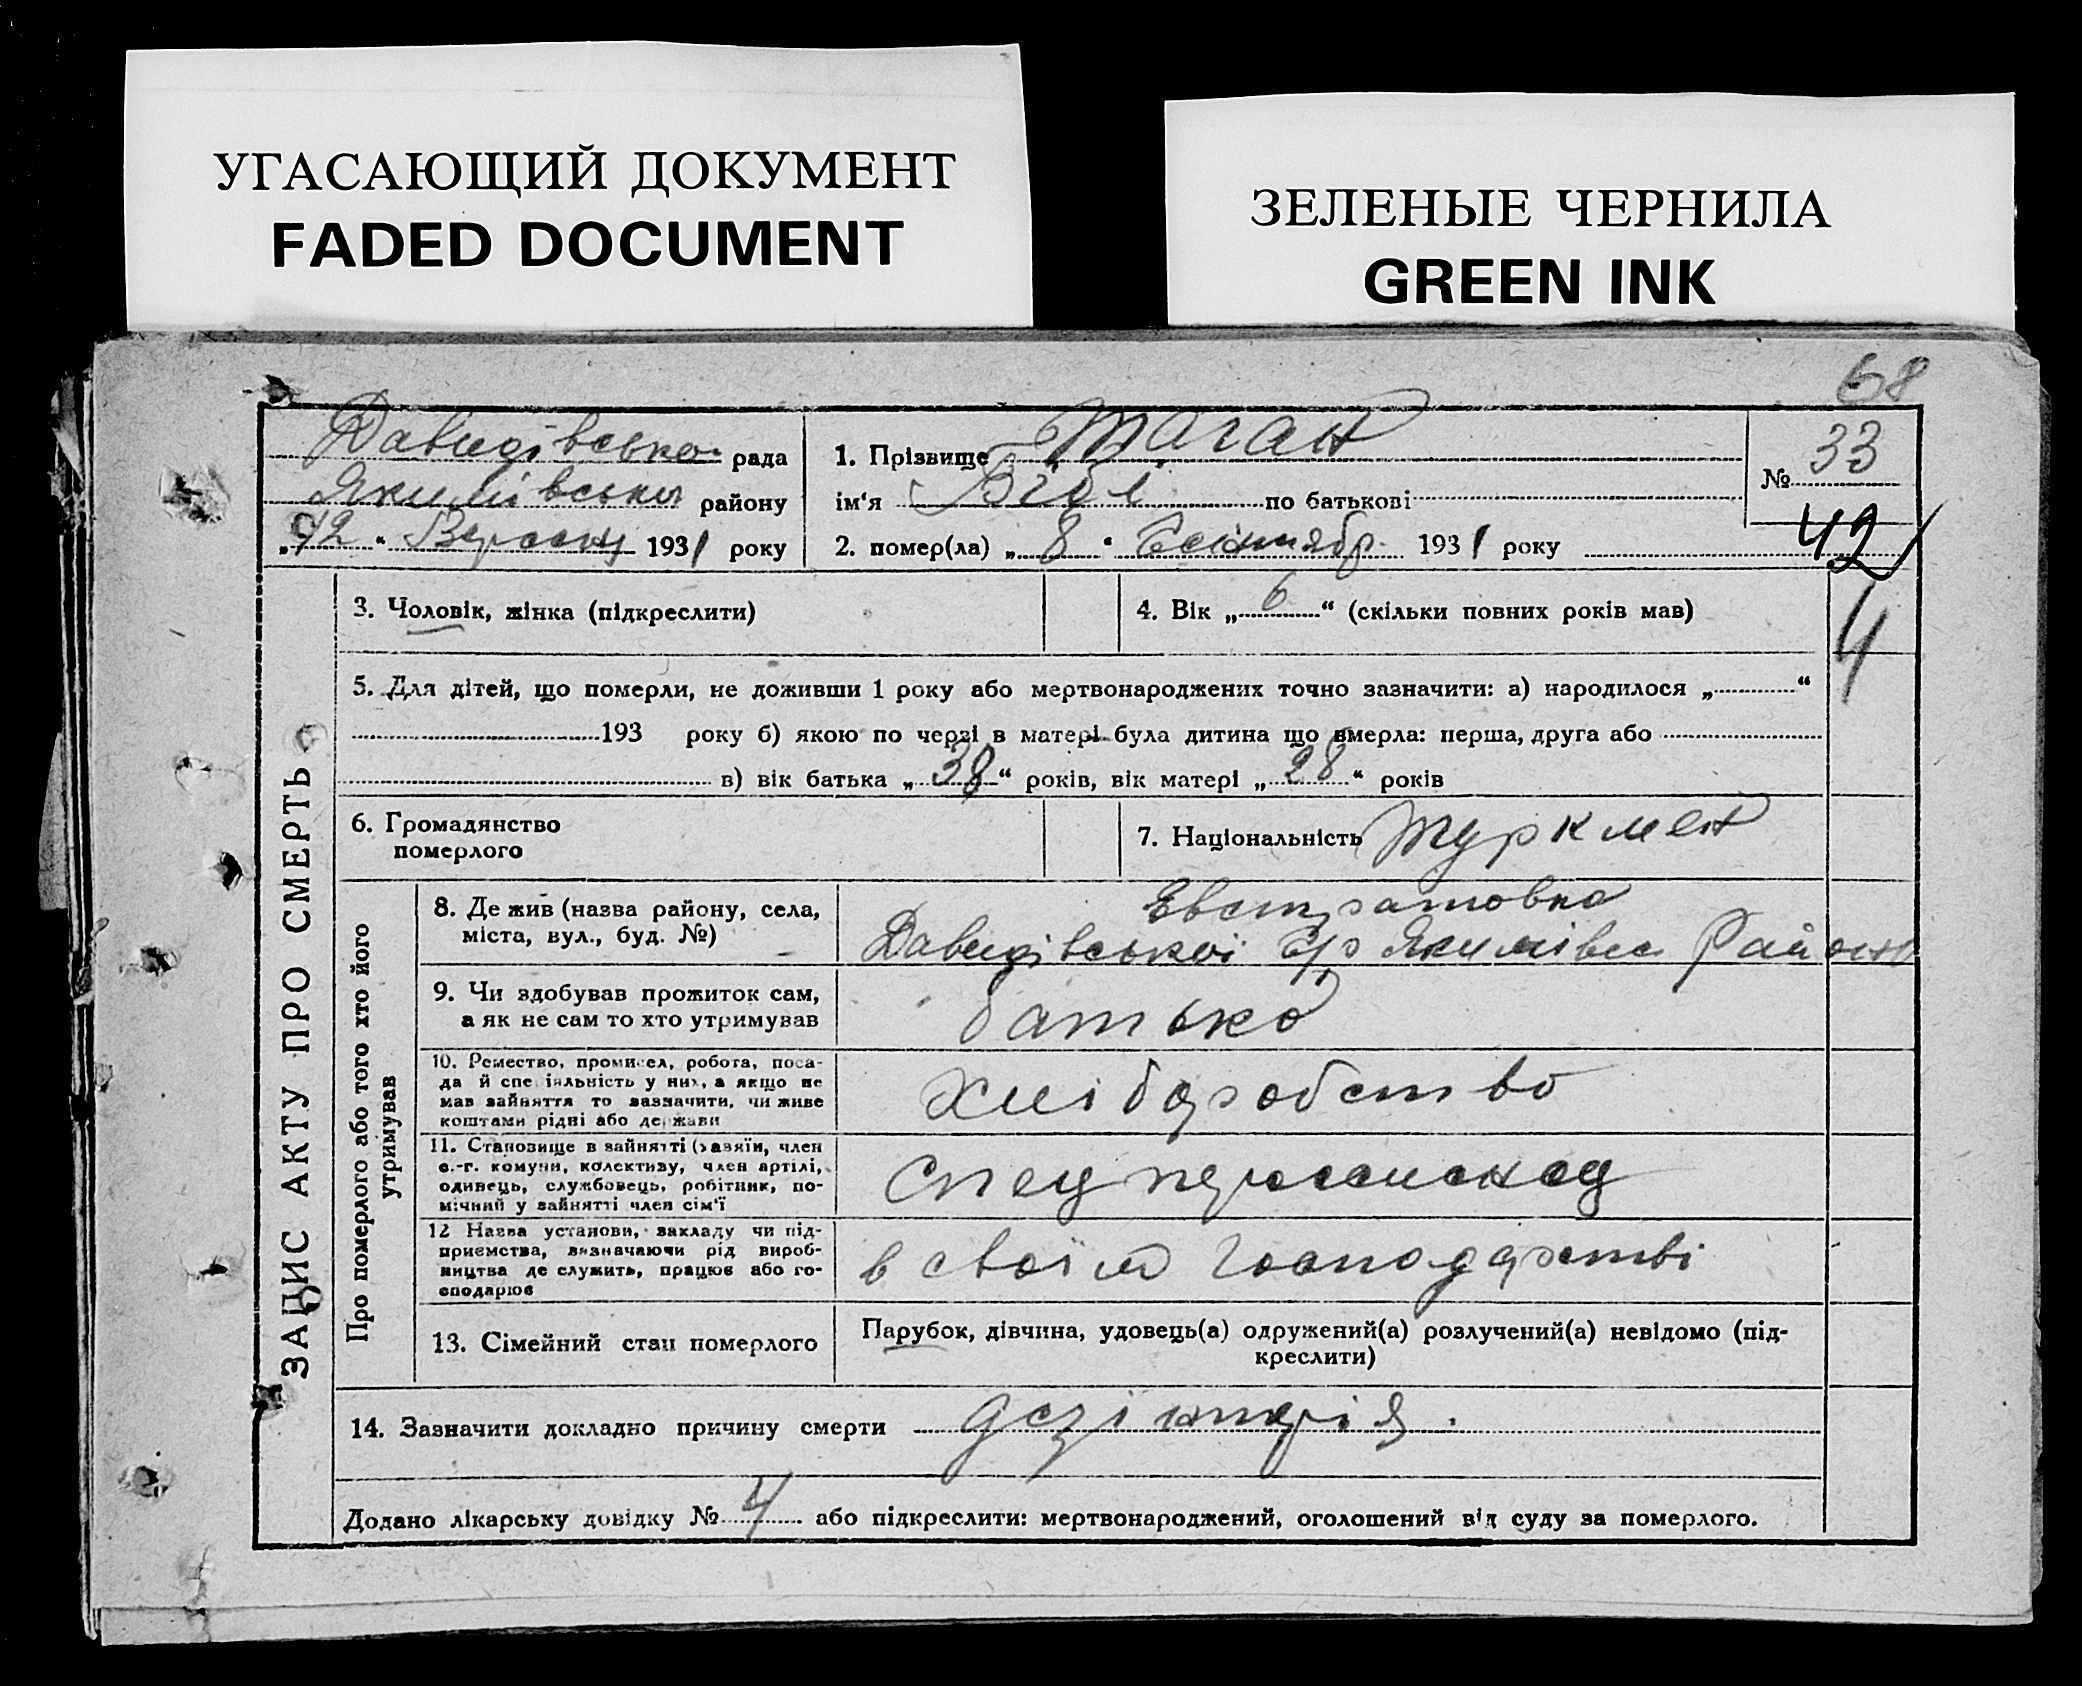 УГАСАЮЩИЙ ДОКУМЕНТ
FADED DOCUMENT
ЗЕЛЕНЫЕ ЧЕРНИЛА
GREEN INK
68
Давидівська рада
Якимівська району
„12“ Вересня 1931 року
1. Прізвище Таган
ім'я по батькові
2. помер(ла) „8“ Сентябр 1931 року
№ 33
42
4
ЗАПИС АКТУ ПРО СМЕРТЬ
3. Чоловік, жінка (підкреслити)
4. Вік „6“ (скільки повних років мав)
5. Для дітей, що померли, не доживши 1 року або мертвонароджених точно зазначити: а) народилося „ “
193 року б) якою по черзі в матері була дитина що вмерла: перша, друга або
в) вік батька „38“ років, вік матері „28“ років
6. Громадянство
померлого
7. Національність туркмен
Про померлого або того хто його
утримував
8. Де жив (назва району, села,
міста, вул., буд. №)
Евстратовка
Давидівської с/р Якимівс Району
9. Чи здобував прожиток сам,
а як не сам то хто утримував
батько
10. Ремество, промисел, робота, поса-
да й спеціяльність у них, а якщо не
мав зайняття то зазначити, чи живе
коштами рідні або держави
хліборобство
11. Становище в зайнятті (хазяїн, член
с.-г. комуни, колективу, член артілі,
одинець, службовець, робітник, по-
мічний у зайнятті член сім'ї
12 Назва установи, закладу чи під-
приємства, визначаючи рід вироб-
ництва де служить, працює або го-
сподарює
в своїм господарстві
13. Сімейний стан померлого
Парубок, дівчина, удовець(а) одружений(а) розлучений(а) невідомо (під-
креслити)
14. Зазначити докладно причину смерти дезінтерія.
Додано лікарську довідку № 4 або підкреслити: мертвонароджений, оголошений від суду за померлого.